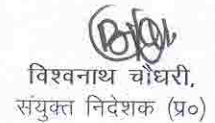 विश्वनाथ चौधरी,
संयुक्त निदेशक (प्र०)